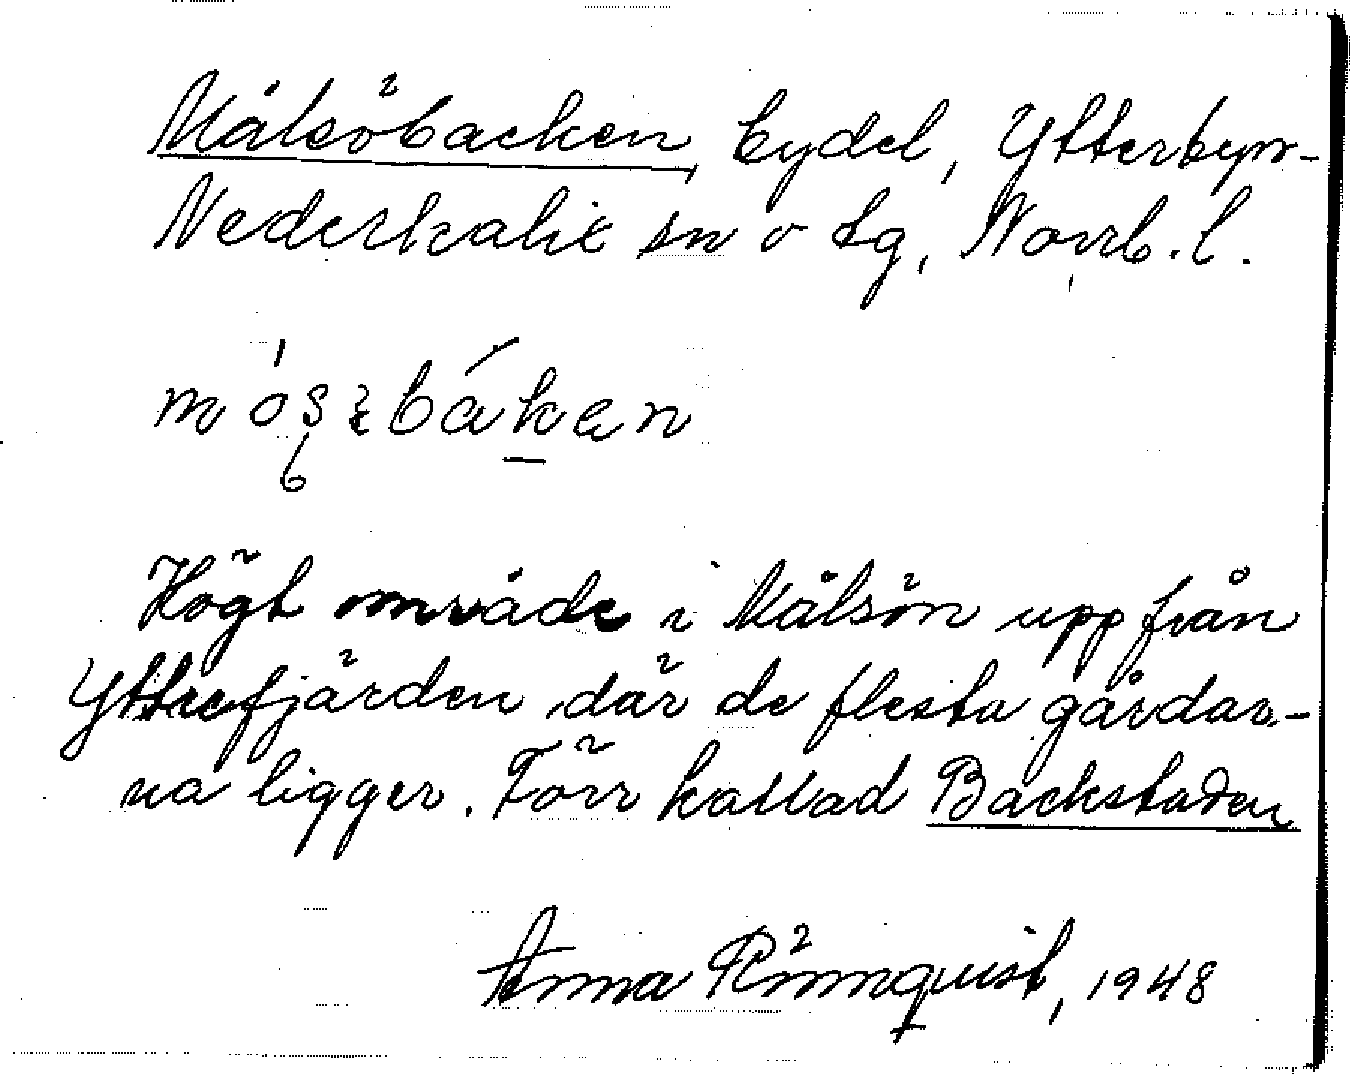 Målsöbacken, bydel, Ytterbyn-
Nederkalix sn o tg, Norrb. l.
Högt område i Målsön upp från
Ytterfjärden, där de flesta gårdar-
na ligger. Förr kallad Backstaden
Anna Rönnquist, 1948